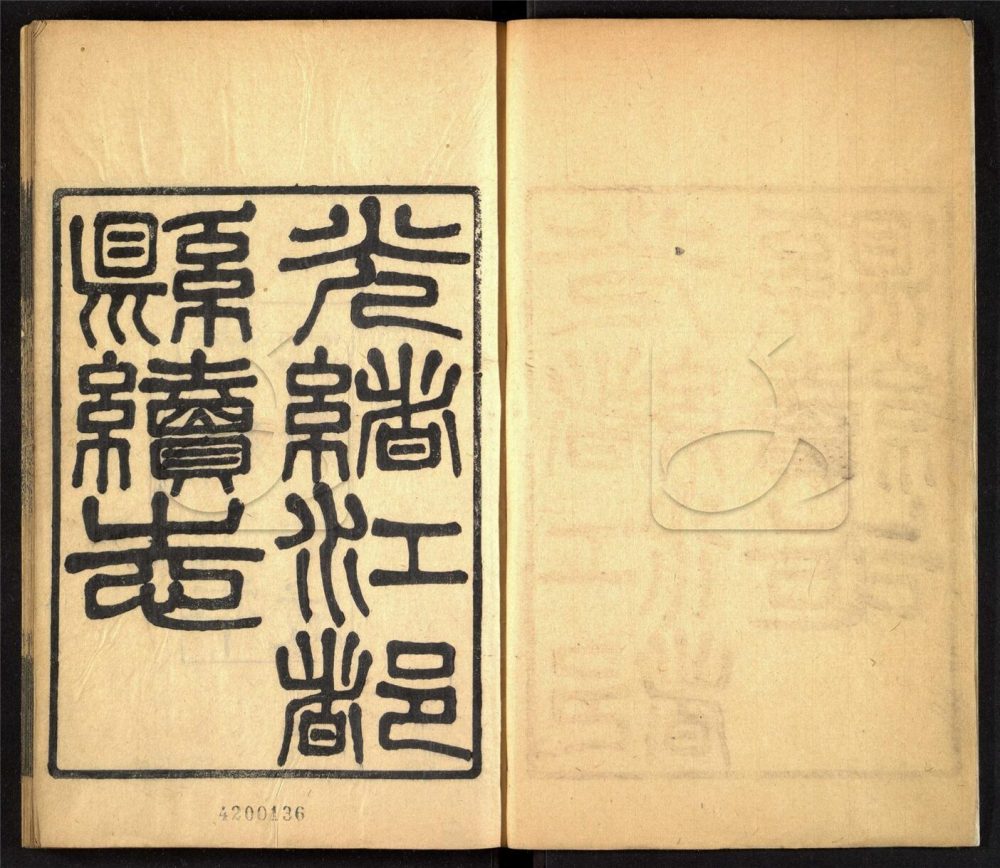 光緒江都
縣續志
4200136